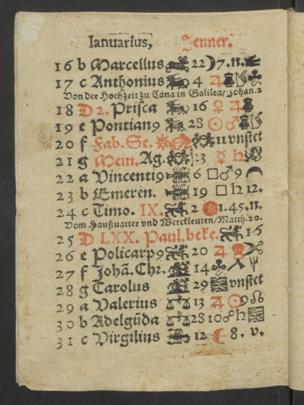 Ianuarius, Jenner.
16 b Marcellus 22 7. n.
17 c Anthonius 4 ♃
Von der Hochzeit zu Cana in Galilea/ Johan. 2
18 D 2. Prisca 16 ♀ ♃
19 e Pontian9 28 ☉ ♂
20 f Fab. Se. 11 vnstet
21 g Mein. Ag. 23 ☿ ♄
22 a Vincenti9 6 □ ♂
23 b Emeren. 19 □ ♄ 12.
24 c Timo. IX. 2 1. 45. n.
Vom Haußuatter vnd Werckleuten/ Matth. 20.
25 D LXX. Paul. beke. 16
26 e Policarp9 20 ♃
27 f Johā. Chr. 14
28 g Carolus 29 vnstet
29 a Valerius 13 ♃
30 b Adelgūda 28 10 ☍ ♄
31 c Virgilius 12 ☾ 8. v.